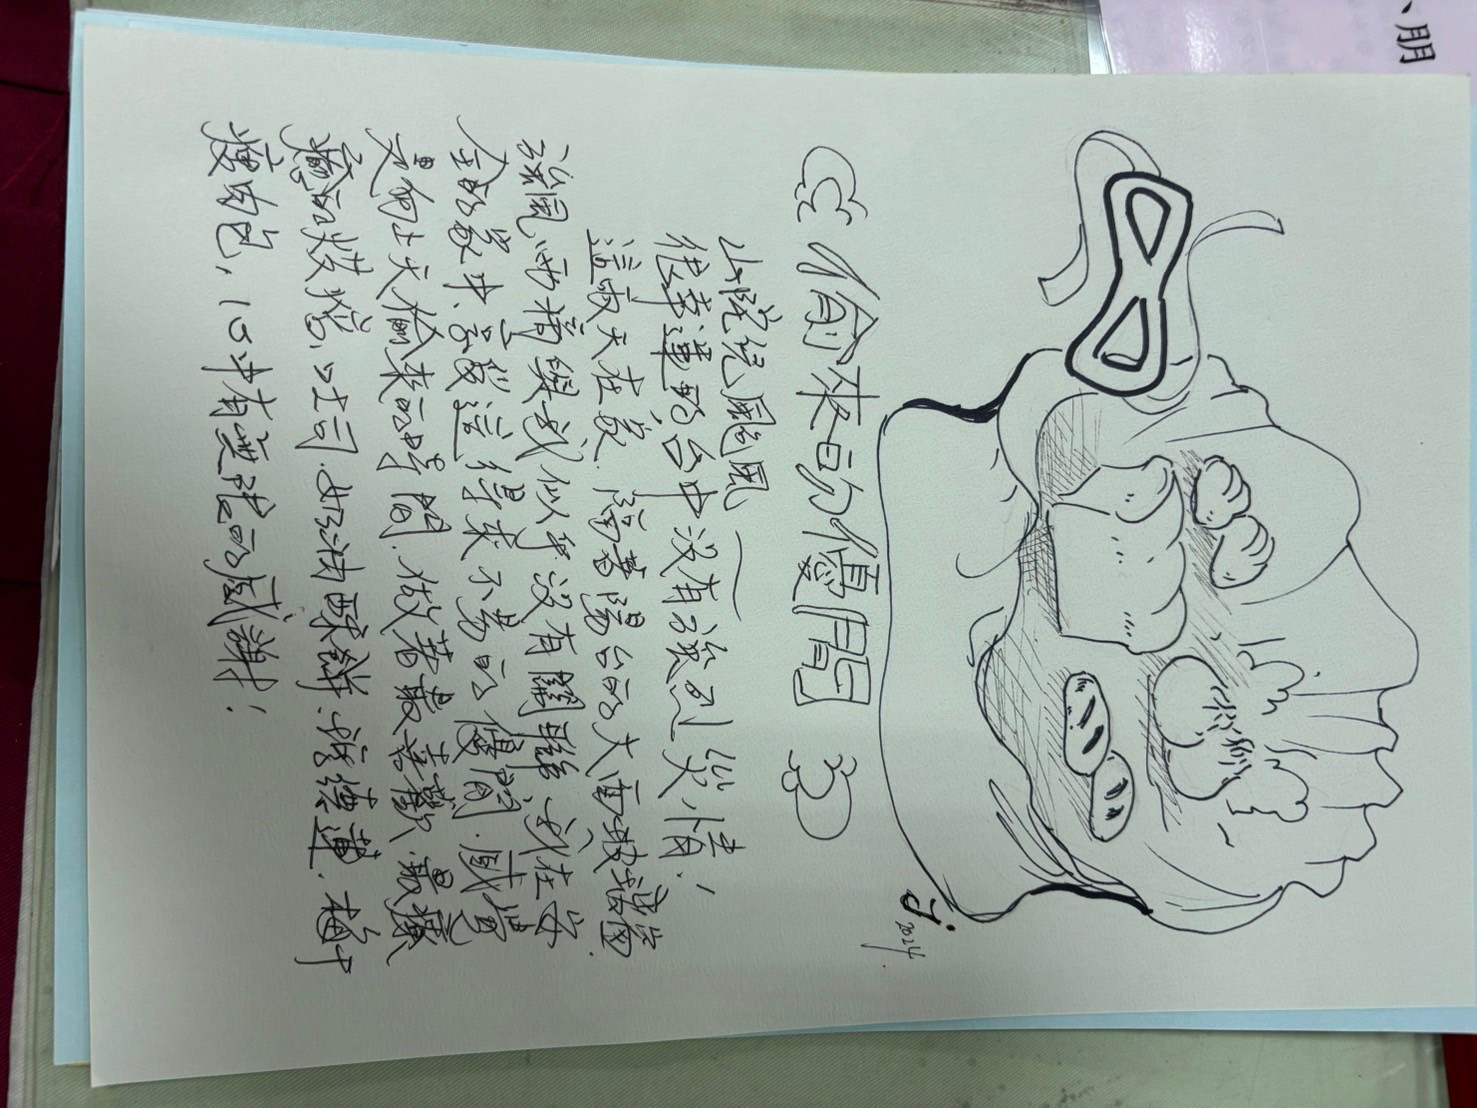 、朋
j 2024
偷來的優閒
山陀兒颱風——
很幸運的,台中沒有強烈災情!
這兩天在家.隔著陽台的大面玻璃窗.
強風、雨積與我似乎沒有關聯.我在安
全的家中、享受這得來不易的優閒.感覺
是向上天偷來的時間.做著最喜歡.最療
癒的烘焙、吐司.奶油酥餅.瑪德蓮.梅干
瘦肉包,心中有無限的感謝!